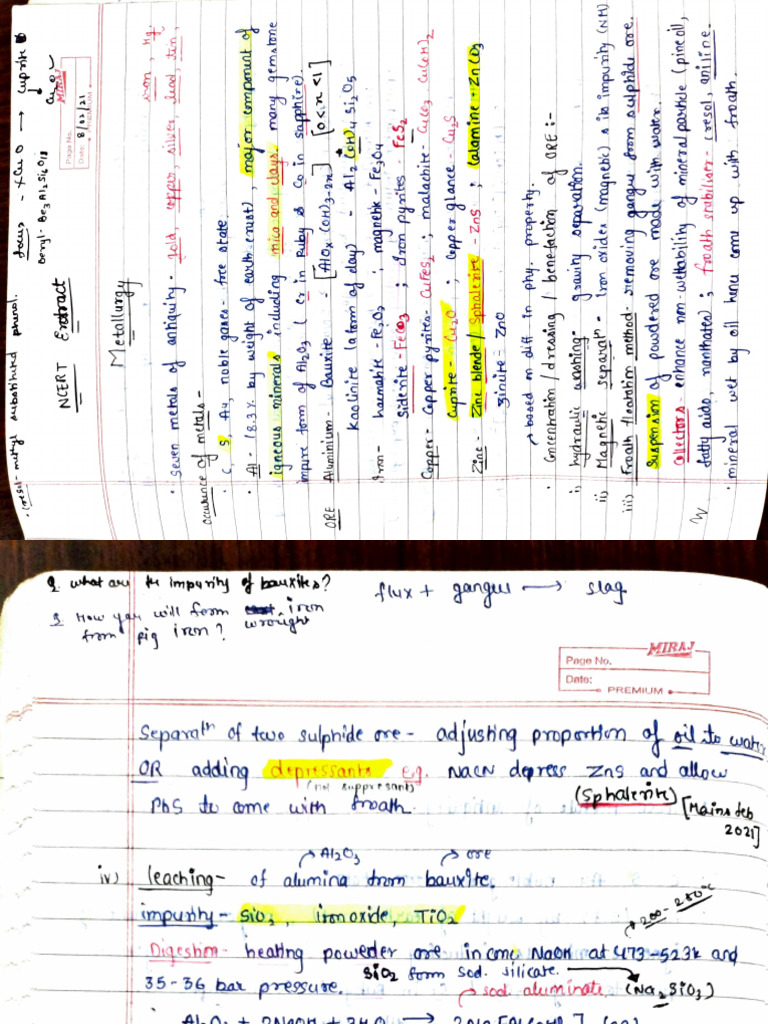 • Cresol- methyl substituted phenol.
focus - xCuO → Cuprite
Cu2O
Beryl- Be3Al2Si6O18
MIRAJ
Page No.
Date: 8/02/21
PREMIUM
NCERT Extract
Metallurgy
• Seven metals of antiquity - gold, copper, silver, lead, tin,
iron, Hg.
occurance of metals-
• C, S, Au, noble gases - free state
• Al- (8.3% by weight of earth crust), major component of
igneous minerals including mica and clays. many gemstone
impure form of Al2O3 (Cr in Ruby & Co in sapphire).
ORE Aluminium - Bauxite - [AlOx(OH)3-2x] [0<x<1]
Kaolinite (a form of clay) - Al2(OH)4Si2O5
Iron- haematite-Fe2O3 ; magnetite-Fe3O4
Siderite-FeCO3 ; Iron pyrites- FeS2
Copper- Copper pyrites- CuFeS2 ; malachite- CuCO3 Cu(OH)2
Cuprite- Cu2O ; Copper glance- Cu2S
Zinc- Zinc blende/Sphalerite- ZnS ; Calamine- ZnCO3
Zincite- ZnO
→ based on diff in phy. property.
• Concentration / dressing / benefaction of ORE :-
i) hydraulic washing- gravity separation.
ii) Magnetic separatn- iron oxides (magnetic) & its impurity (NM)
iii) Froath floatation method- removing gangue from sulphide ore.
suspension of powdered ore made with water.
collectors- enhance non-wettability of mineral particle (pine oil,
fatty acids, xanthates) ; froath stabiliser- cresol, aniline.
• mineral wet by oil hence come up with froath.
Q. what are the impurity of bauxites?
flux + gangue → slag
Q How you will form iron
from pig iron? wrought
MIRAJ
Page No.
Date:
PREMIUM
Separatn of two sulphide ore - adjusting proportion of oil to water
OR adding depressants e.g. NaCN depress ZnS and allow
(not suppresant)
(Sphalerite)
PbS to come with froath.
[Mains feb
2021]
→ Al2O3
→ ore
iv) leaching- of alumina from bauxite.
impurity- SiO2, iron oxide, TiO2
→ 200-250°C
Digestion- heating powder ore in conc NaOH at 473-523k and
SiO2 form sod. silicate.
35-36 bar pressure.
→ sod. aluminate
(Na2SiO3)